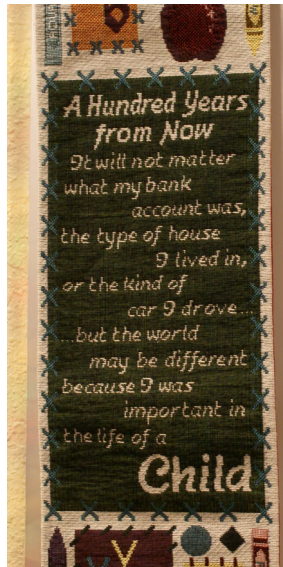 A Hundred Years
from Now
It will not matter
what my bank
account was,
the type of house
I lived in,
or the kind of
car I drove...
...but the world
may be different
because I was
important in
the life of a
Child